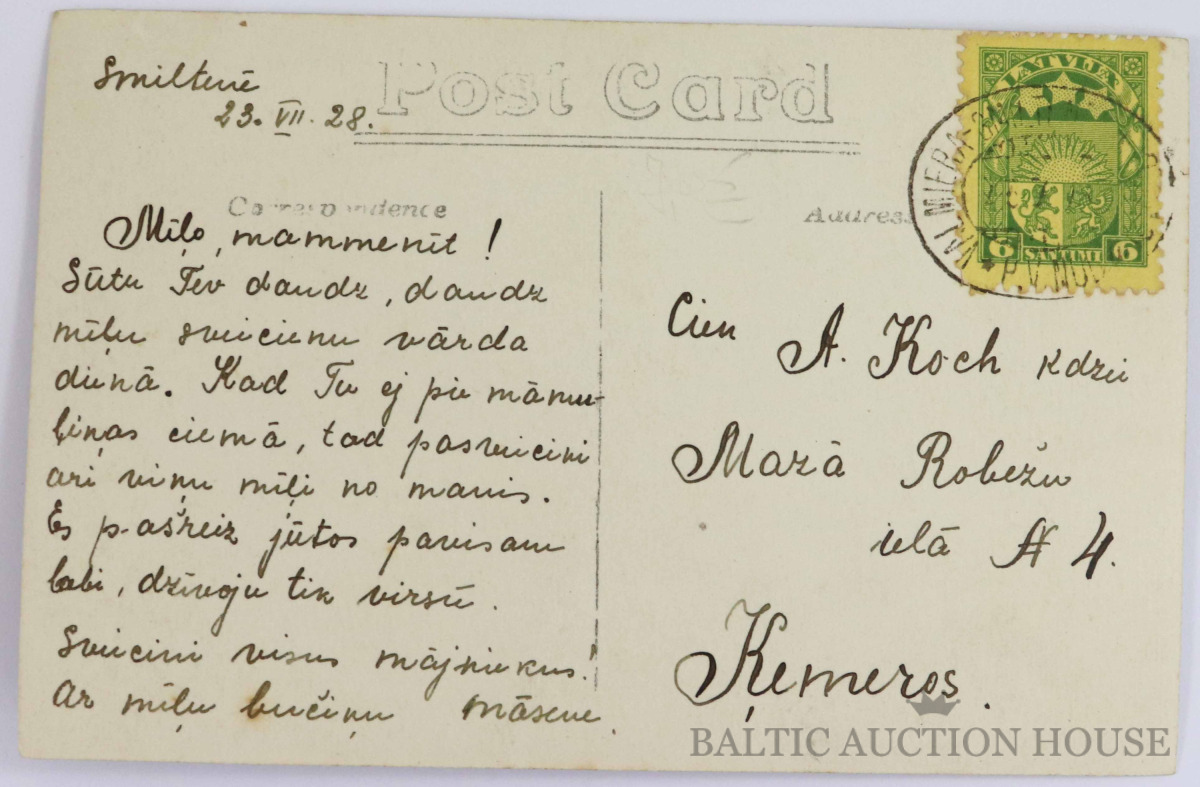 Smiltenē
23. VII. 28.
Post Card
Correspondence
Address
LATVIJA
6 SANTIMI 6
VALMIERA
P.V. NOD
Mīļo, mammenīt!
Sūtu Tev daudz, daudz
mīļu sveicienu vārda
dienā. Kad Tu ej pie māmu-
liņas ciemā, tad pasveicini
arī viņu mīļi no manis.
Es pašreiz jūtos pavisam
labi, dzīvoju tik virsū.
Sveicini visus mājniekus!
Ar mīļu bučiņu
Cien
A. Koch kdzei
Mazā Robežu
ielā № 4.
Ķemeros.
BALTIC AUCTION HOUSE